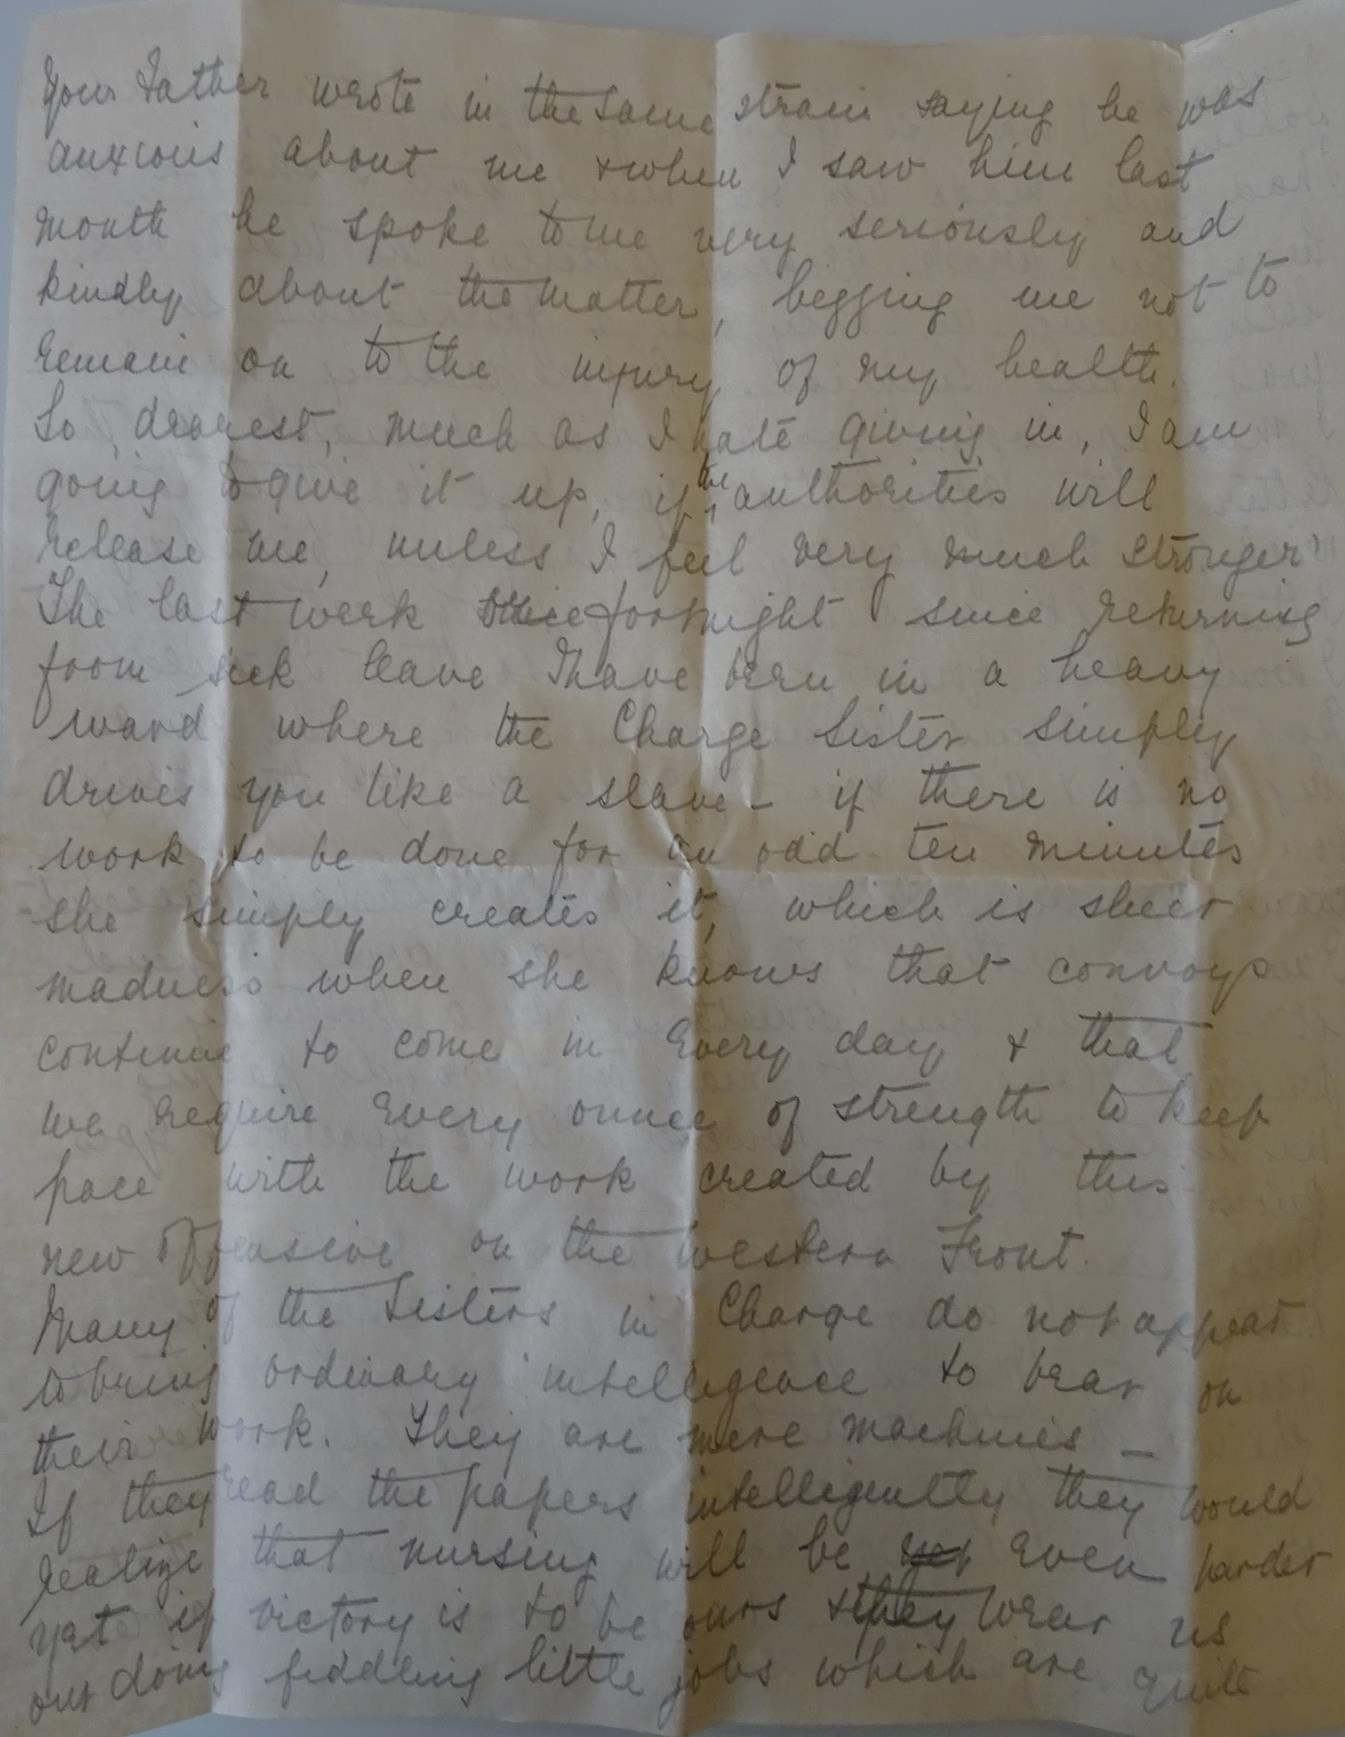 Your Father wrote in the same strain saying he was
anxious about me & when I saw him last
month he spoke to me very seriously and
kindly about the matter, begging me not to
remain on to the injury of my health.
So, dearest, much as I hate giving in, I am
going to give it up, if the authorities will
release me, unless I feel very much stronger
The last week fortnight since returning
from sick leave I have been in a heavy
ward where the Charge Sister simply
drives you like a slave – if there is no
work to be done for an odd ten minutes
she simply creates it, which is sheer
madness when she knows that convoys
continue to come in every day & that
we require every ounce of strength to keep
pace with the work created by this
new offensive on the Western Front.
Many of the Sisters in Charge do not appear
to bring ordinary intelligence to bear on
their work. They are mere machines –
If they read the papers intelligently they would
realize that nursing will be yet even harder
yet if victory is to be ours & they wear us
out doing fiddling little jobs which are quite